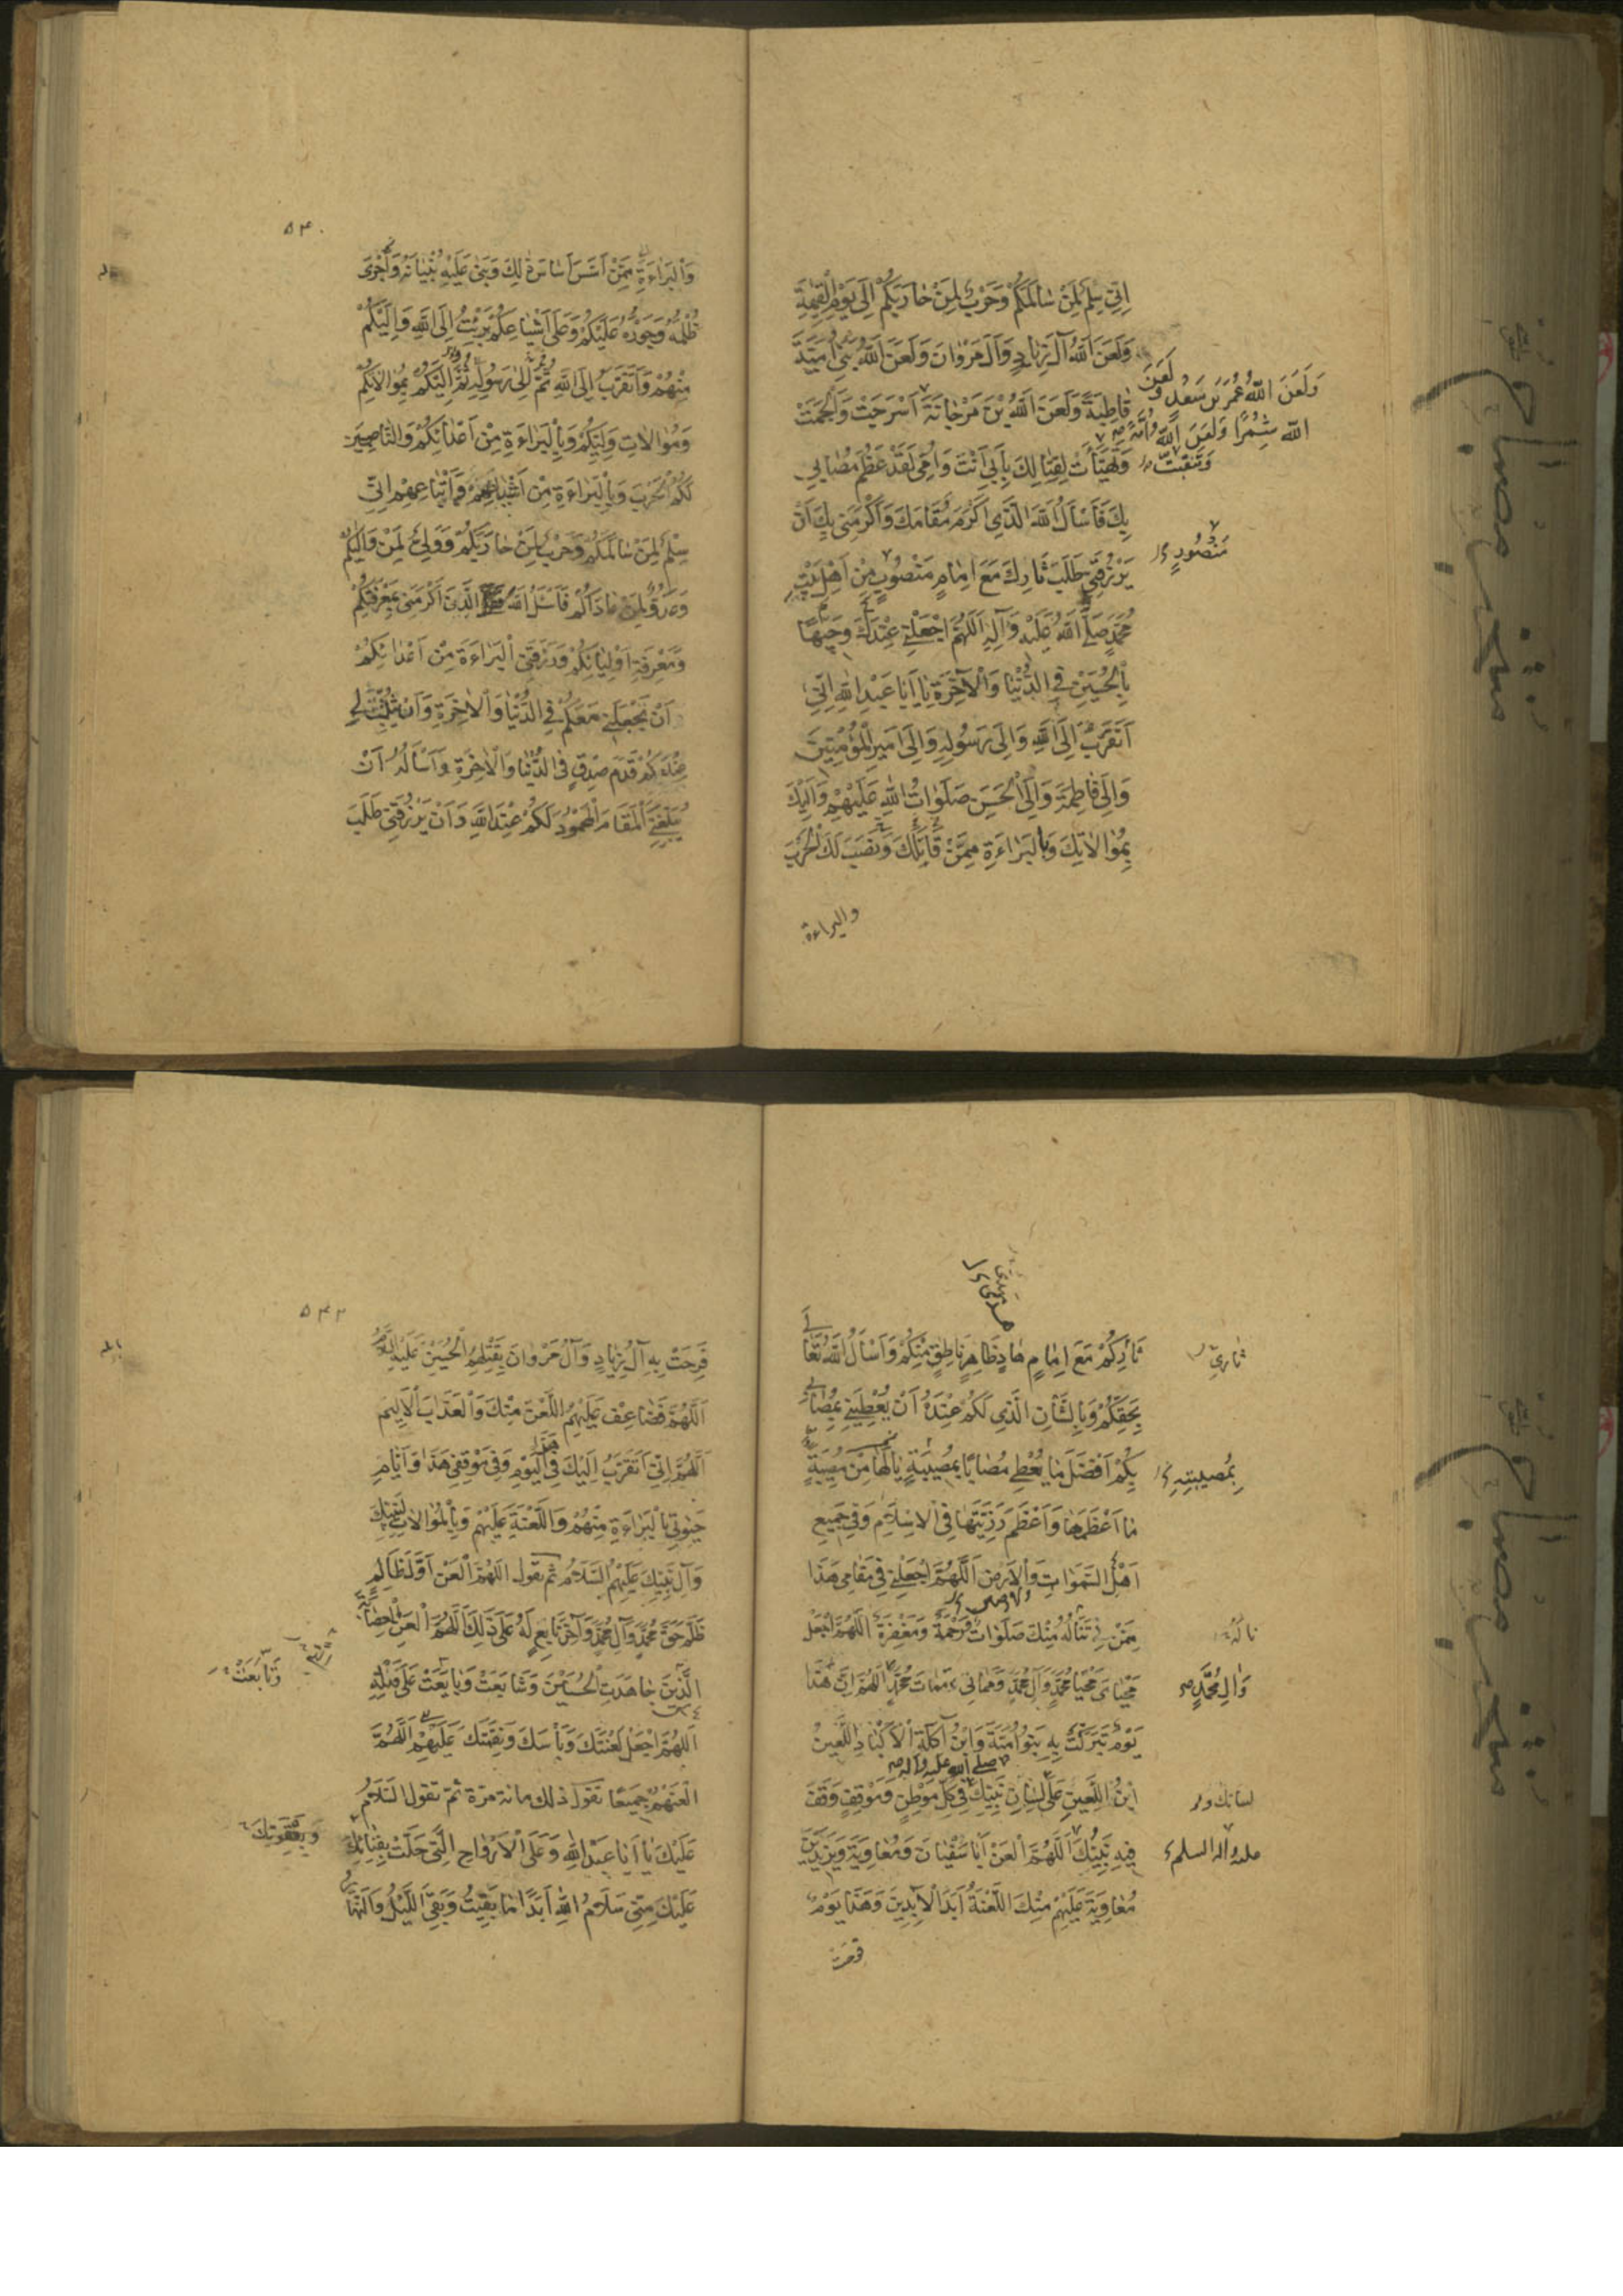 اِنّي سِلْمٌ لِمَنْ سٰالَمَكُمْ وَحَرْبٌ لِمَنْ حٰارَبَكُمْ اِلَى يَوْمِ الْقِيٰمَةِ
وَلَعَنَ اللّٰهُ آلَ زِيٰادٍ وَآلَ مَرْوٰانَ وَلَعَنَ اللّٰهُ بَنِي اُمَيَّةَ
قٰاطِبَةً وَلَعَنَ اللّٰهُ ابْنَ مَرْجٰانَةَ اَسْرَجَتْ وَاَلْجَمَتْ
وَلَعَنَ اللّٰهُ عُمَرَ بْنَ سَعْدٍ وَلَعَنَ
اللّٰه شِمْرًا وَلَعَنَ اللّٰهُ اُمَّةً
وَتَنَقَّبَتْ
وَتَهَيَّأَتْ لِقِتٰالِكَ بِاَبِي اَنْتَ وَاُمّي لَقَدْ عَظُمَ مُصٰابِي
بِكَ فَاَسْاَلُ اللّٰهَ الَّذِي اَكْرَمَ مَقٰامَكَ وَاَكْرَمَنِي بِكَ اَنْ
يَرْزُقَنِي طَلَبَ ثٰارِكَ مَعَ اِمٰامٍ مَنْصُوبٍ مِنْ اَهْلِ بَيْتِ
مَنْصُورٍ
مُحَمَّدٍ صَلَّى اللّٰهُ عَلَيْهِ وَآلِهِ اَللّٰهُمَّ اجْعَلْنِي عِنْدَكَ وَجِيهًا
بِالْحُسَيْنِ فِي الدُّنْيٰا وَالْآخِرَةِ يٰا اَبٰا عَبْدِ اللّٰهِ اِنّي
اَتَقَرَّبُ اِلَى اللّٰهِ وَاِلَى رَسُولِهِ وَاِلَى اَمِيرِ الْمُؤْمِنِينَ
وَاِلَى فٰاطِمَةَ وَاِلَى الْحَسَنِ صَلَوٰاتُ اللّٰهِ عَلَيْهِمْ وَاِلَيْكَ
بِمُوٰالاتِكَ وَبِالْبَرٰاءَةِ مِمَّنْ قٰاتَلَكَ وَنَصَبَ لَكَ الْحَرْبَ
والبراءة
٥٤٠
وَالْبَرٰاءَةِ مِمَّنْ اَسَّسَ اَسٰاسَ ذٰلِكَ وَبَنٰى عَلَيْهِ بُنْيٰانَهُ وَاَجْرٰى
ظُلْمَهُ وَجَوْرَهُ عَلَيْكُمْ وَعَلَى اَشْيٰاعِكُمْ بَرِئْتُ اِلَى اللّٰهِ وَاِلَيْكُمْ
مِنْهُمْ وَاَتَقَرَّبُ اِلَى اللّٰهِ ثُمَّ اِلَى رَسُولِهِ ثُمَّ اِلَيْكُمْ بِمُوٰالاتِكُمْ
وَمُوٰالاتِ وَلِيِّكُمْ وَبِالْبَرٰاءَةِ مِنْ اَعْدٰائِكُمْ وَالنّٰاصِبِينَ
لَكُمُ الْحَرْبَ وَبِالْبَرٰاءَةِ مِنْ اَشْيٰاعِهِمْ وَاَتْبٰاعِهِمْ اِنّي
سِلْمٌ لِمَنْ سٰالَمَكُمْ وَحَرْبٌ لِمَنْ حٰارَبَكُمْ وَوَلِيٌّ لِمَنْ وٰالاكُمْ
وَعَدُوٌّ لِمَنْ عٰادٰاكُمْ فَاَسْئَلُ اللّٰهَ الَّذِي اَكْرَمَنِي بِمَعْرِفَتِكُمْ
وَمَعْرِفَةِ اَوْلِيٰائِكُمْ وَرَزَقَنِي الْبَرٰاءَةَ مِنْ اَعْدٰائِكُمْ
اَنْ يَجْعَلَنِي مَعَكُمْ فِي الدُّنْيٰا وَالْاٰخِرَةِ وَاَنْ يُثَبِّتَ لِي
عِنْدَكُمْ قَدَمَ صِدْقٍ فِي الدُّنْيٰا وَالْاٰخِرَةِ وَاَسْاَلُهُ اَنْ
يُبَلِّغَنِي الْمَقٰامَ الْمَحْمُودَ لَكُمْ عِنْدَ اللّٰهِ وَاَنْ يَرْزُقَنِي طَلَبَ
ثٰارِكُمْ مَعَ اِمٰامٍ هٰادٍ ظٰاهِرٍ نٰاطِقٍ مِنْكُمْ وَاَسْاَلُ اللّٰهَ تَعٰالٰى
ثارى
بِحَقِّكُمْ وَبِالشَّأْنِ الَّذِي لَكُمْ عِنْدَهُ اَنْ يُعْطِيَنِي بِمُصٰابِي
بِكُمْ اَفْضَلَ مٰا يُعْطِي مُصٰابًا بِمُصِيبَةٍ يٰالَهٰا مِنْ مُصِيبَةٍ
بِمُصِيبَتِهِ
مٰا اَعْظَمَهٰا وَاَعْظَمَ رَزِيَّتَهٰا فِي الْاِسْلَامِ وَفِي جَمِيعِ
اَهْلِ السَّمَوٰاتِ وَالْاَرْضِ اَللّٰهُمَّ اجْعَلْنِي فِي مَقٰامِي هٰذَا
مِمَّنْ تَنٰالُهُ مِنْكَ صَلَوٰاتٌ وَرَحْمَةٌ وَمَغْفِرَةٌ اَللّٰهُمَّ اجْعَلْ
نالَهُ
مَحْيٰايَ مَحْيٰا مُحَمَّدٍ وَآلِ مُحَمَّدٍ وَمَمٰاتِي مَمٰاتَ مُحَمَّدٍ اَللّٰهُمَّ اِنَّ هٰذَا
وَالِ مُحَمَّدٍ
يَوْمٌ تَبَرَّكَتْ بِهِ بَنُو اُمَيَّةَ وَابْنُ آكِلَةِ الْاَكْبٰادِ اللَّعِينُ
صلى الله عليه واله
ابْنُ اللَّعِينِ عَلَى لِسٰانِ نَبِيِّكَ فِي كُلِّ مَوْطِنٍ وَمَوْقِفٍ وَقَفَ
لسانك و
فِيهِ نَبِيُّكَ اَللّٰهُمَّ الْعَنْ اَبٰا سُفْيٰانَ وَمُعٰاوِيَةَ وَيَزِيدَ بْنَ
عليه واله السلم
مُعٰاوِيَةَ عَلَيْهِمْ مِنْكَ اللَّعْنَةُ اَبَدَ الْآبِدِينَ وَهٰذَا يَوْمٌ
فرحت
فَرِحَتْ بِهِ آلُ زِيٰادٍ وَآلُ مَرْوٰانَ بِقَتْلِهِمُ الْحُسَيْنَ عَلَيْهِ السَّلَامُ
اَللّٰهُمَّ فَضٰاعِفْ عَلَيْهِمُ اللَّعْنَ مِنْكَ وَالْعَذٰابَ الْاَلِيمَ
اَللّٰهُمَّ اِنّي اَتَقَرَّبُ اِلَيْكَ فِي هٰذَا الْيَوْمِ وَفِي مَوْقِفِي هٰذَا وَاَيّٰامِ
حَيٰوتِي بِالْبَرٰاءَةِ مِنْهُمْ وَاللَّعْنَةِ عَلَيْهِمْ وَبِالْمُوٰالاتِ لِنَبِيِّكَ
وَآلِ نَبِيِّكَ عَلَيْهِمُ السَّلَامُ ثم تقول اَللّٰهُمَّ الْعَنْ اَوَّلَ ظٰالِمٍ
ظَلَمَ حَقَّ مُحَمَّدٍ وَآلِ مُحَمَّدٍ وَآخِرَ تٰابِعٍ لَهُ عَلَى ذٰلِكَ اَللّٰهُمَّ الْعَنِ الْعِصٰابَةَ
الَّذِينَ جٰاهَدَتِ الْحُسَيْنَ وَشٰايَعَتْ وَبٰايَعَتْ عَلَى قَتْلِهِ
وَتٰابَعَتْ
اَللّٰهُمَّ اجْعَلْ لَعْنَتَكَ وَبَأْسَكَ وَنِقْمَتَكَ عَلَيْهِمْ اَللّٰهُمَّ
الْعَنْهُمْ جَمِيعًا تقول ذلك مائة مرّة ثمّ تقول السَّلَامُ
عَلَيْكَ يٰا اَبٰا عَبْدِ اللّٰهِ وَعَلَى الْاَرْوٰاحِ الَّتِي حَلَّتْ بِفِنٰائِكَ
عَلَيْكَ مِنّي سَلَامُ اللّٰهِ اَبَدًا مٰا بَقِيتُ وَبَقِيَ اللَّيْلُ وَالنَّهٰارُ